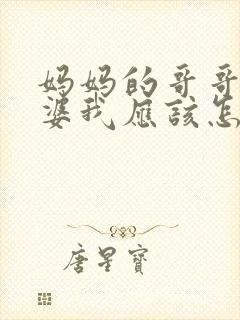 妈妈的哥哥
婆我应该怎
唐星寶